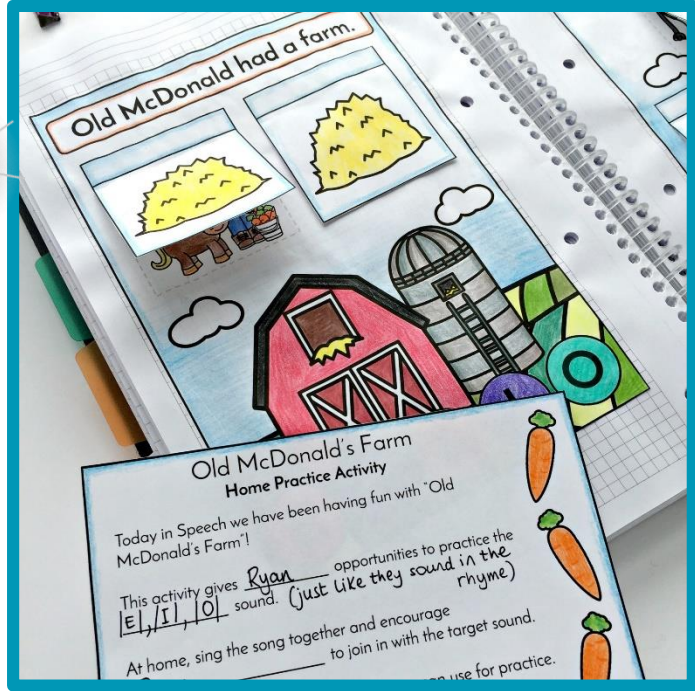 Old McDonald had a farm.
O
Old McDonald's Farm
Home Practice Activity
Today in Speech we have been having fun with "Old
McDonald's Farm"!
This activity gives Ryan opportunities to practice the
|E|,|I|,|O| sound. (just like they sound in the
rhyme)
At home, sing the song together and encourage
to join in with the target sound.
use for practice.